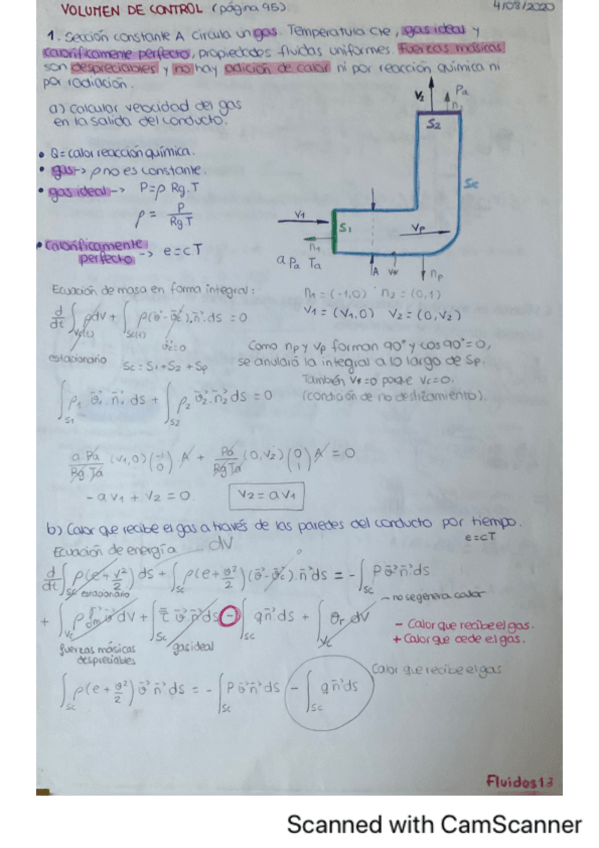 VOLUMEN DE CONTROL (página 95)
4/08/2020
1. Sección constante A circula un gas. Temperatura cte, gas ideal y
caloríficamente perfecto, propiedades fluidas uniformes. Fuerzas másicas
son despreciables y no hay adición de calor ni por reacción química ni
por radiación.
a) calcular velocidad del gas
en la salida del conducto.
V2 Pa
n2
S2
Sc
V1
S1
n1
a Pa Ta
Vp
A
np
• Q = calor reacción química.
• gas → ρ no es constante.
• gas ideal → P = ρ Rg.T
ρ = P / Rg T
• Caloríficamente
perfecto → e = cT
Ecuación de masa en forma integral:
n1 = (-1,0) n2 = (0,1)
V1 = (V1,0) V2 = (0,V2)
d/dt ∫ ρdv + ∫ ρ(v-vc).n ds = 0
vc = 0
estacionario
Sc = S1 + S2 + Sp
Como np y vp forman 90° y cos 90° = 0,
se anulará la integral a lo largo de Sp.
(condición de no deslizamiento).
∫S1 ρ1 v1.n1 ds + ∫S2 ρ2 v2.n2 ds = 0
a Pa / Rg Ta (V1,0) (-1 0) A + Pa / Rg Ta (0,V2) (0 1) A = 0
-a V1 + V2 = 0. V2 = a V1
b) Calor que recibe el gas a través de las paredes del conducto por tiempo.
e = cT
Ecuación de energía dV
d/dt ∫ ρ(e + v²/2) ds + ∫Sc ρ(e + v²/2)(v-vc).n ds = - ∫Sc P v n ds
estacionario
- no se genera calor
+ ∫Vc ρ fm v dV + ∫Sc τ v n ds - ∫Sc q n ds + ∫Vc Qr dV
- Calor que recibe el gas.
+ Calor que cede el gas.
fuerzas másicas
despreciables
gas ideal
Calor que recibe el gas
∫Sc ρ(e + v²/2) v n ds = - ∫Sc P v n ds - ∫Sc q n ds
Fluidos 13
Scanned with CamScanner